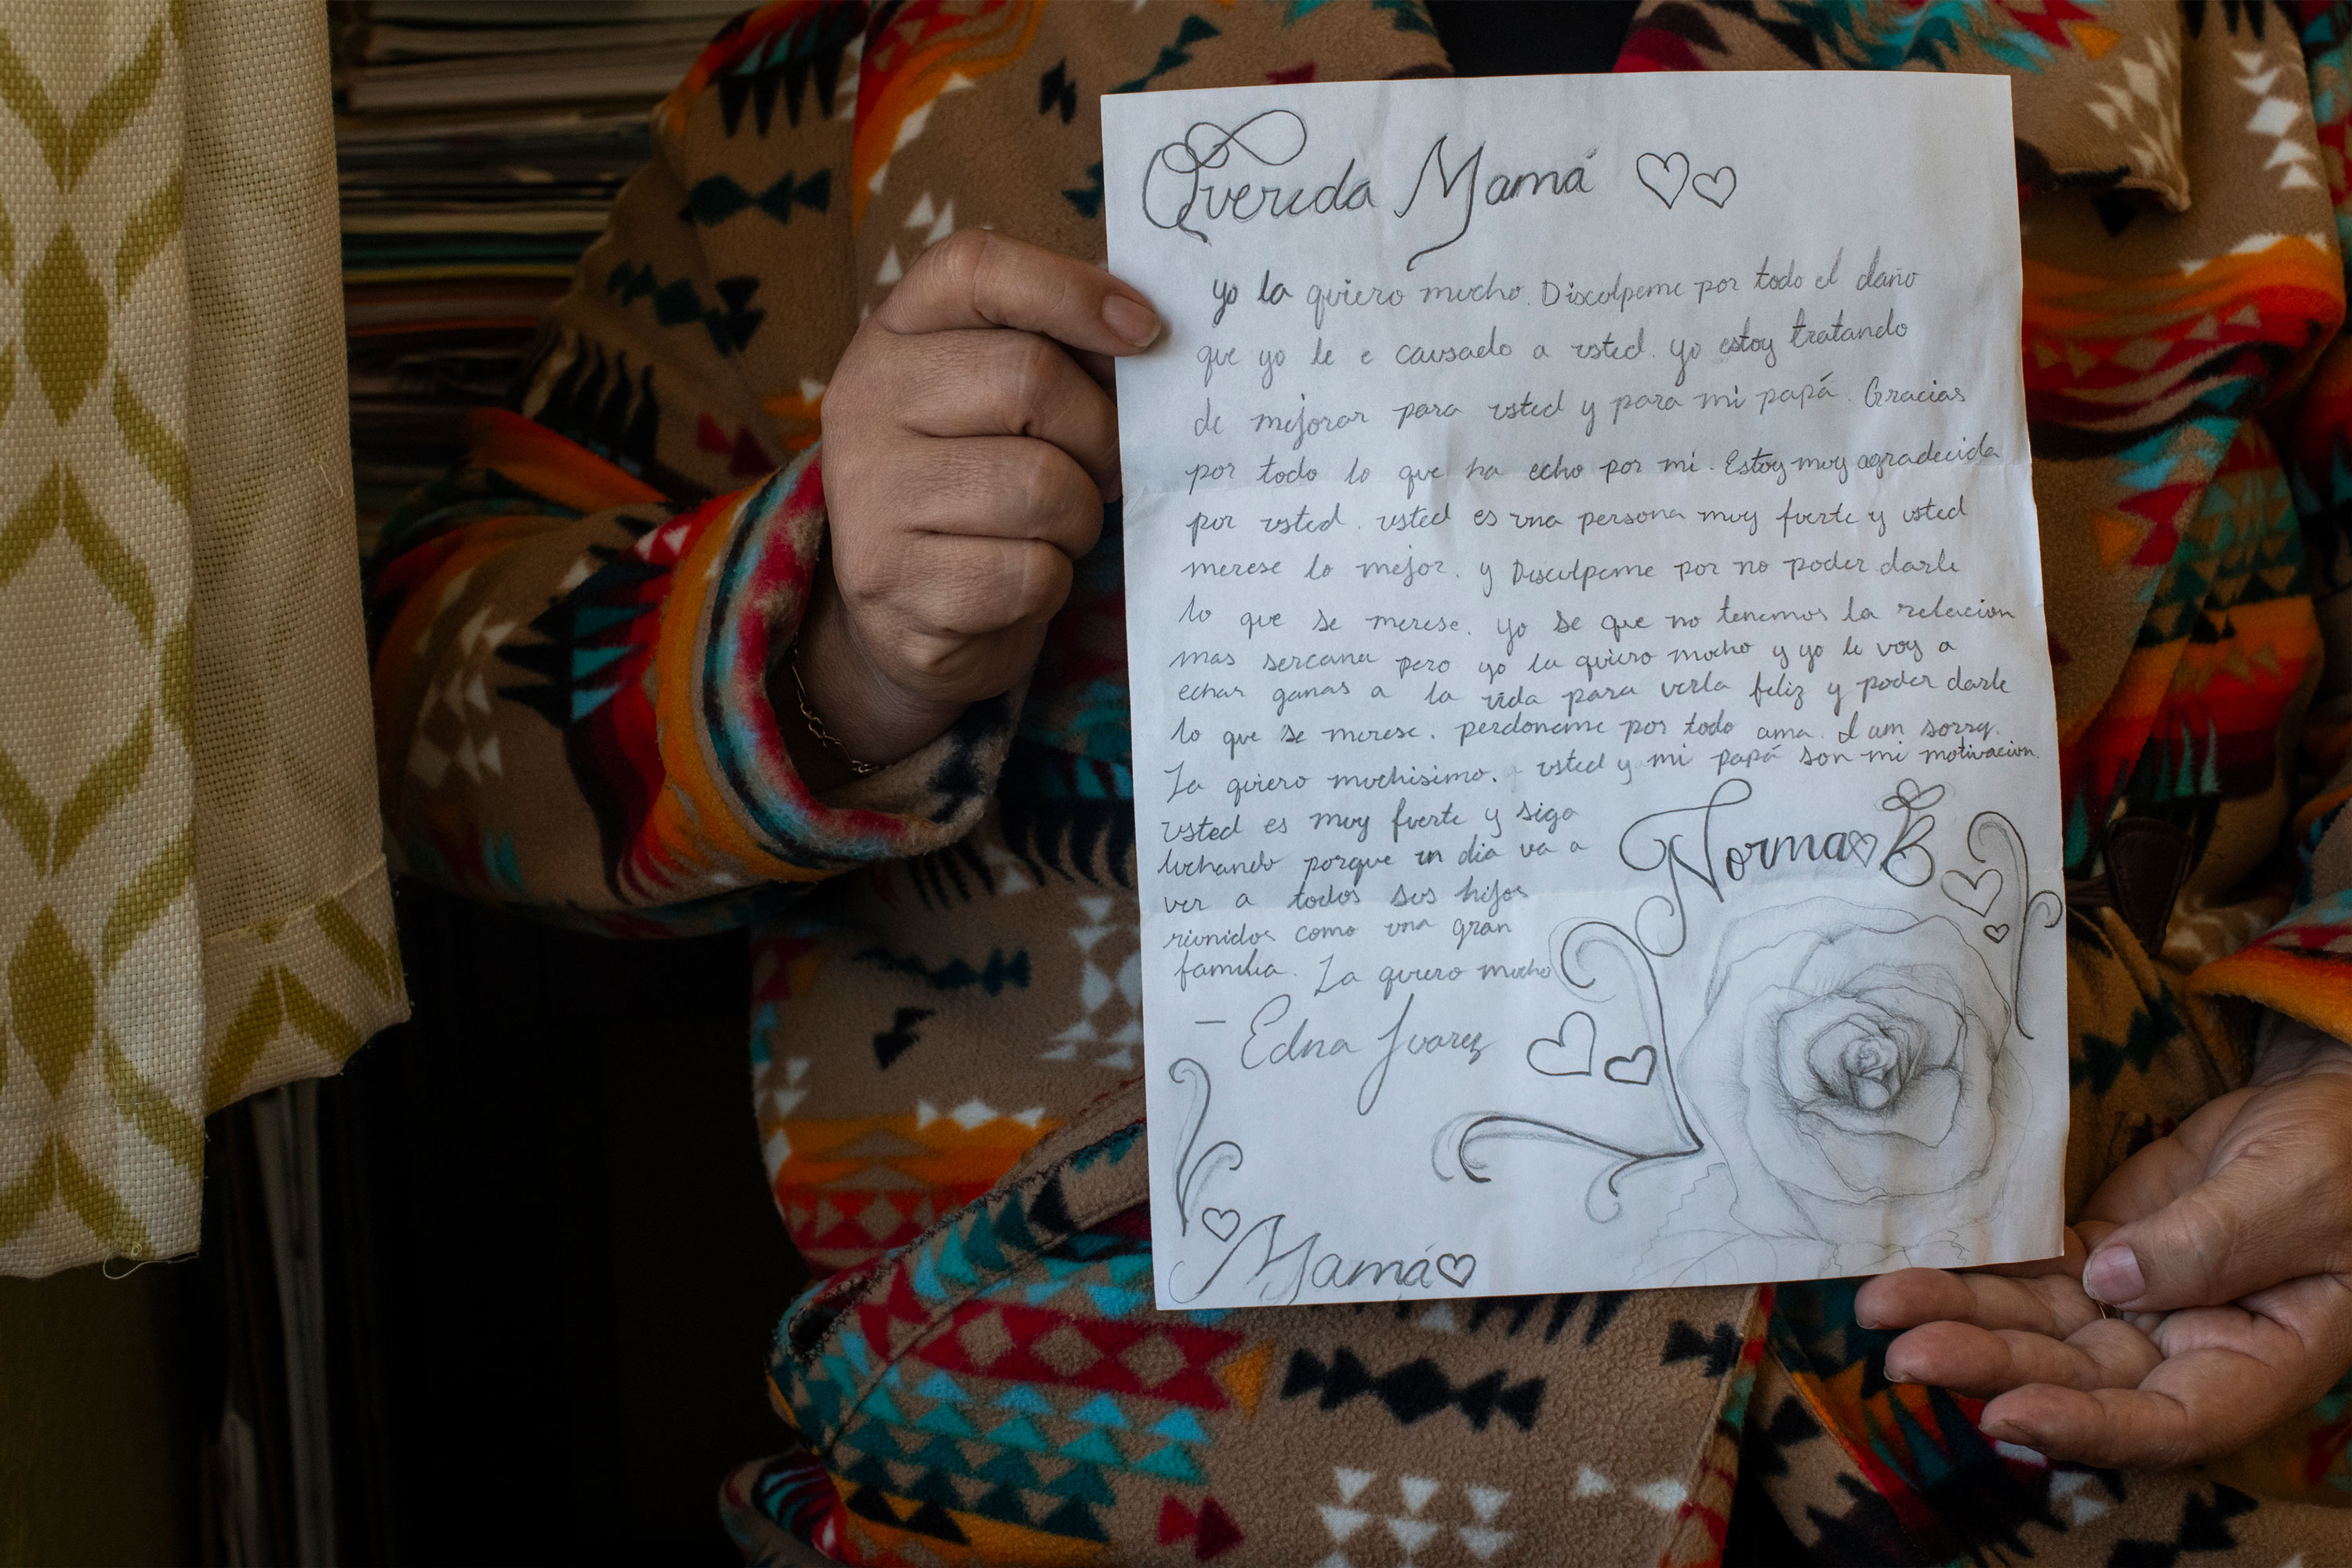 Querida Mamá
yo la quiero mucho. Discolpeme por todo el daño
que yo le e causado a usted. yo estoy tratando
de mejorar para usted y para mi papá. Gracias
por todo lo que ha echo por mi. Estoy muy agradecida
por usted. usted es una persona muy fuerte y usted
merese lo mejor. y Discolpeme por no poder darle
lo que se merese. yo se que no tenemos la relacion
mas sercana pero yo la quiero mucho y yo le voy a
echar ganas a la vida para verla feliz y poder darle
lo que se merese. perdoneme por todo ama. I am sorry.
La quiero muchisimo. usted y mi papá son mi motivacion.
usted es muy fuerte y siga
luchando porque un dia va a
ver a todos sus hijos
riunidos como una gran
familia. La quiero mucho
Norma
— Edna Juarez
Mamá